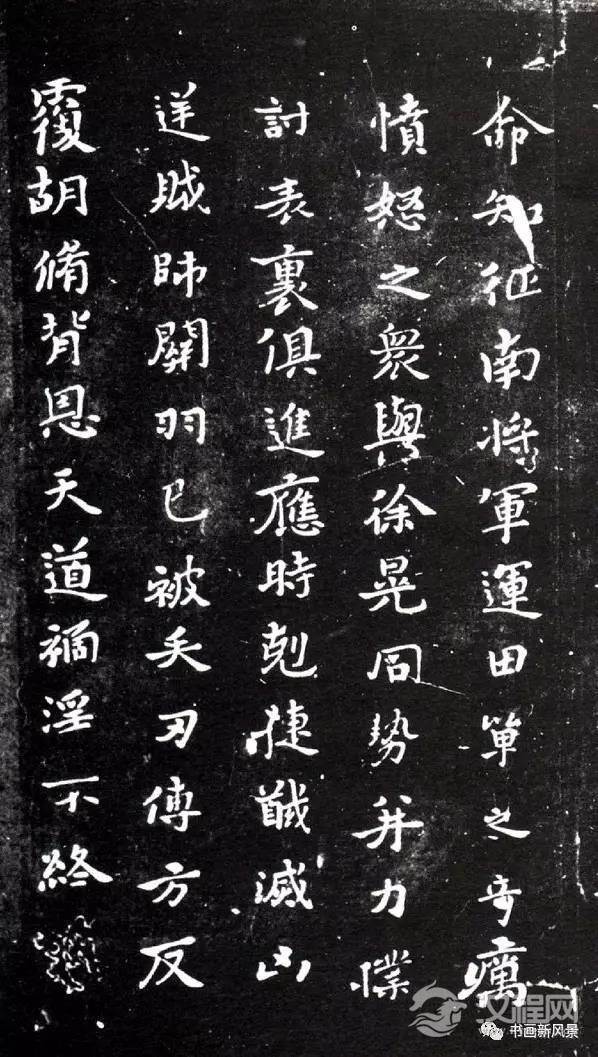 命知征南將軍運田單之奇厲
憤怒之衆與徐晃同勢并力撲
討表裏俱進應時剋捷馘滅凶
逆賊帥關羽已被矢刃傅方反
覆胡脩背恩天道禍淫不終
文程网
书画新风景